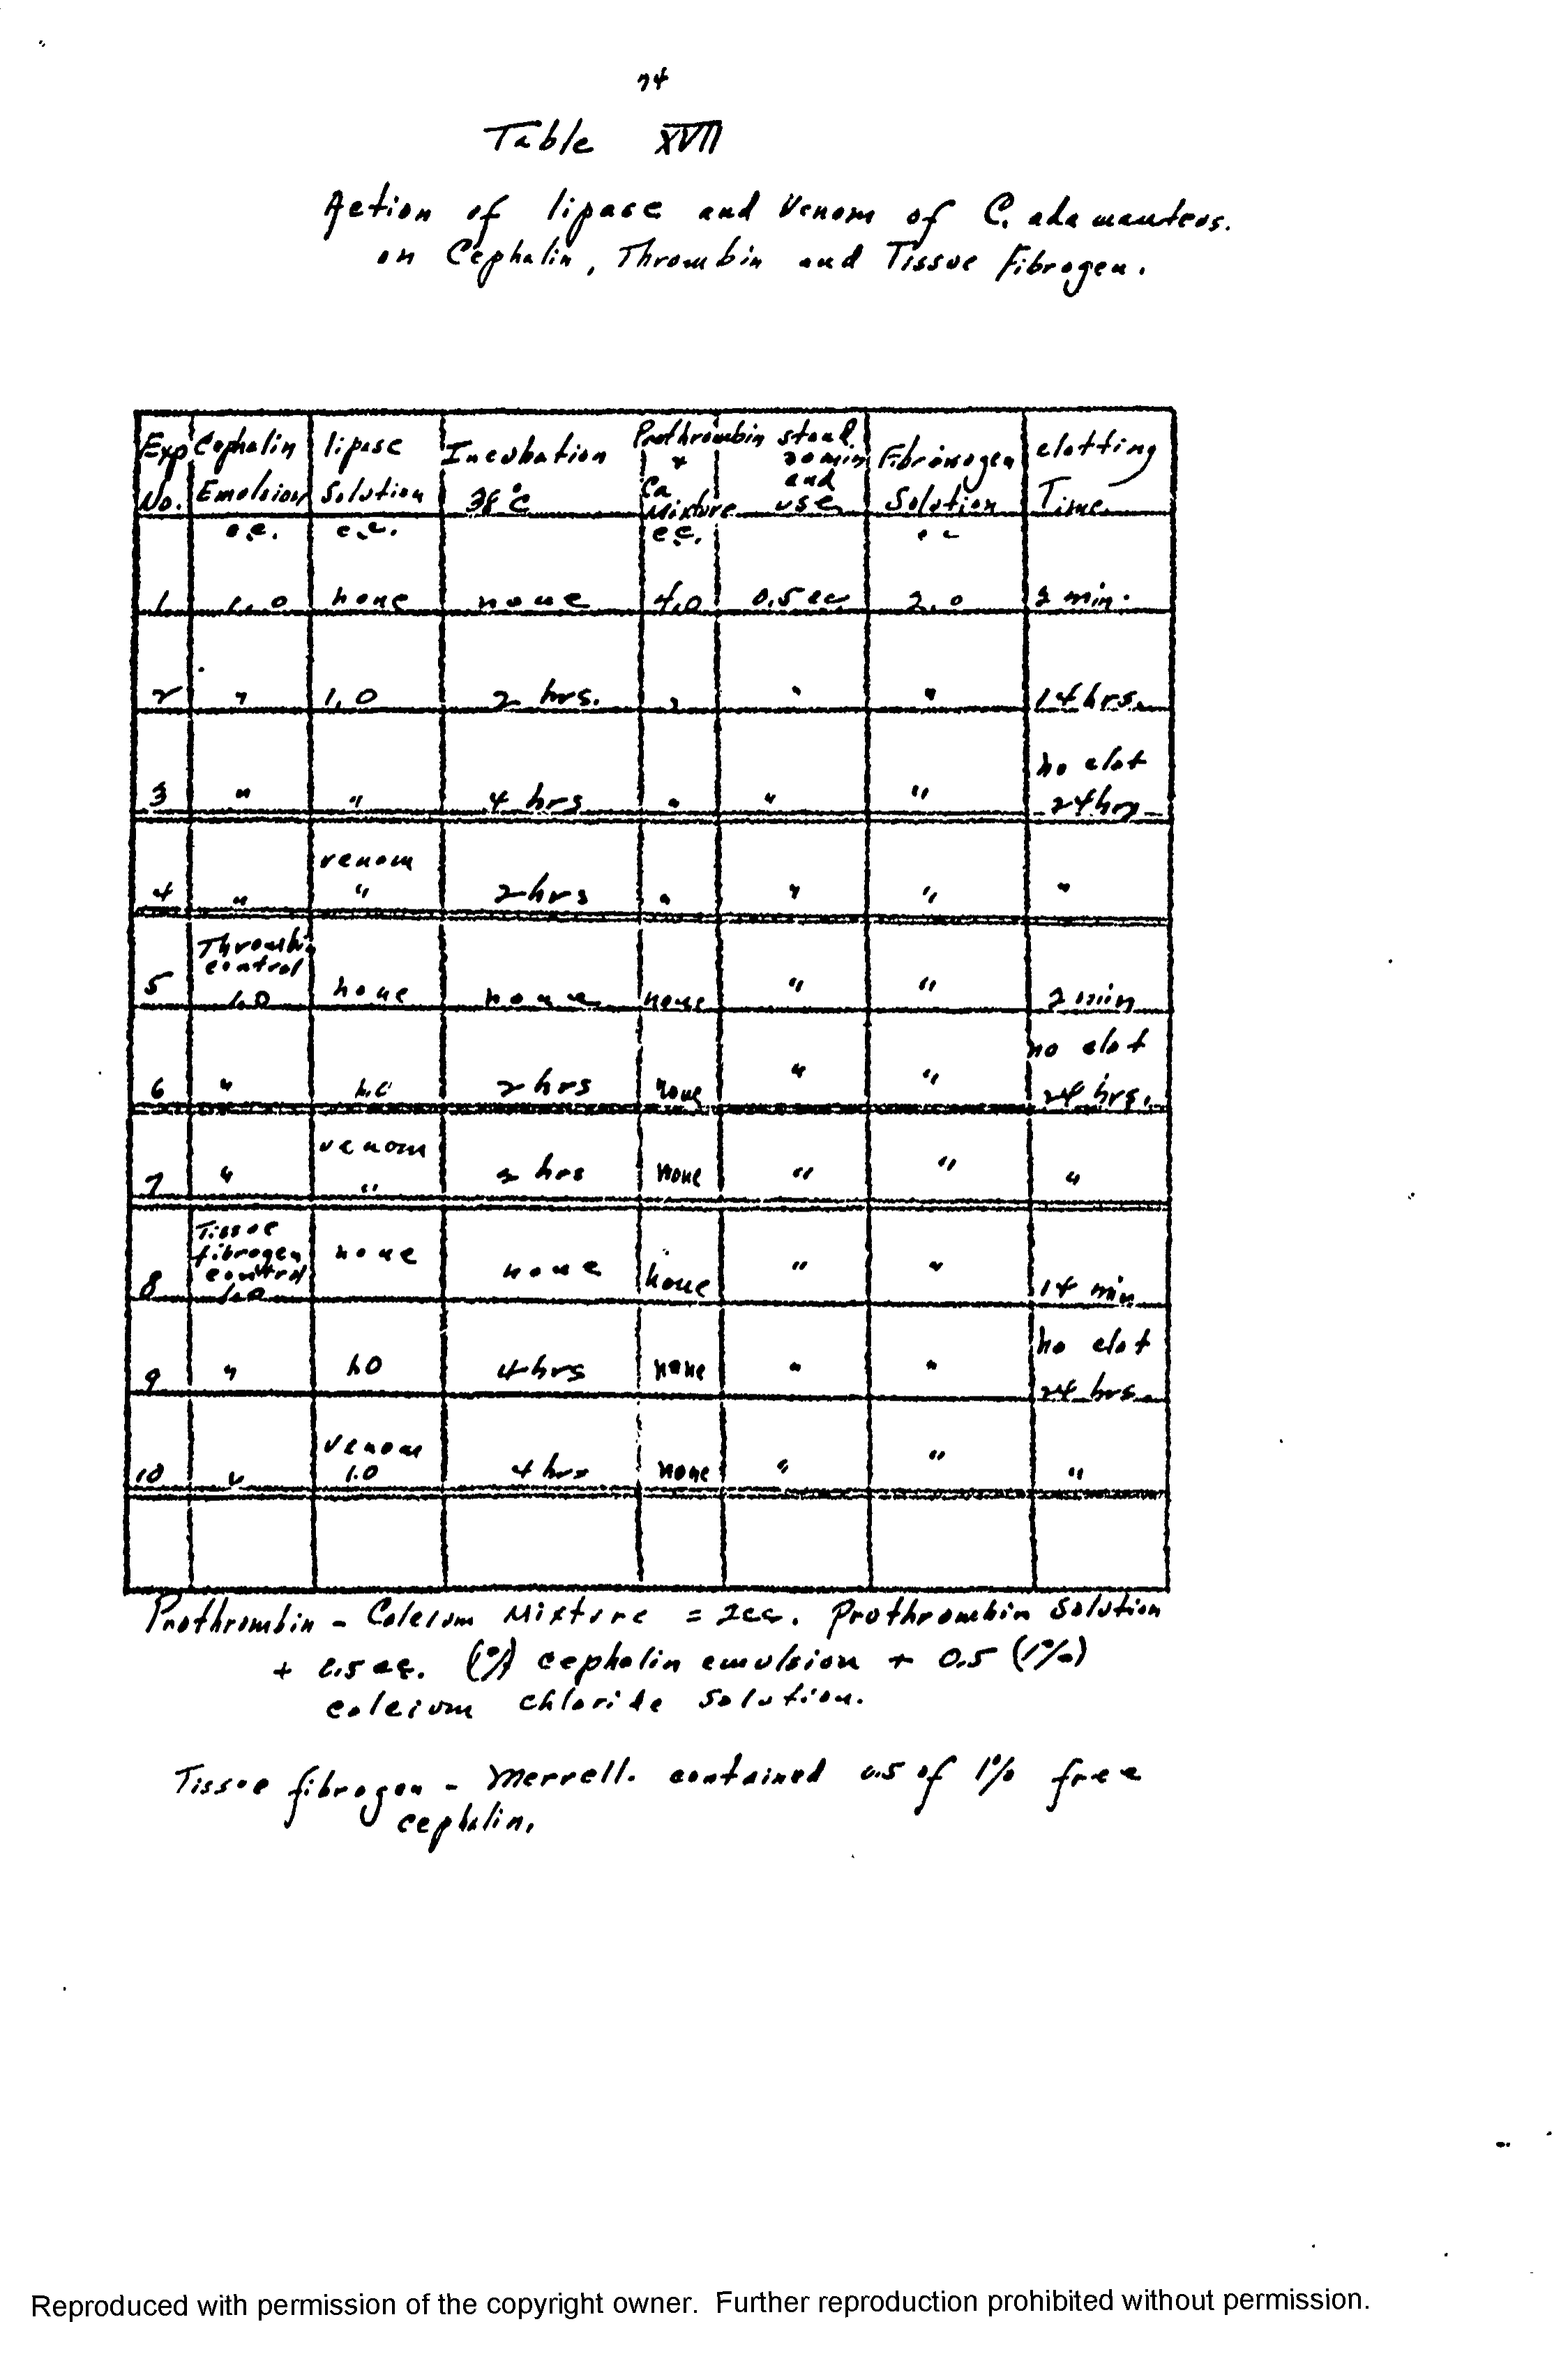 74
Table XVII
Action of lipase and Venom of C. adamanteus.
on Cephalin, Thrombin and Tissue Fibrogen.
Exp No. Cephalin Emulsion c.c. lipase Solution c.c. Incubation 38°C Prothrombin + Ca Mixture c.c. stand 20 min and use Fibrinogen Solution cc clotting Time
1 1.0 none none 4.0 0.5 cc 2.0 2 min.
2 " 1.0 2 hrs. " " " 14 hrs.
3 " " 4 hrs " " " no clot 24 hrs
4 " venom " 2 hrs " " " "
5 Thrombin control 1.0 none none none " " 2 min
6 " 1.0 2 hrs none " " no clot 24 hrs.
7 " venom " 2 hrs none " " "
8 Tissue fibrogen control 1.0 none none none " " 14 min
9 " 1.0 4 hrs none " " no clot 24 hrs
10 " venom 1.0 4 hrs none " " "
Prothrombin - Calcium Mixture = 2cc. Prothrombin Solution
+ 0.5 cc. cephalin emulsion + 0.5 (1%)
calcium chloride solution.
Tissue fibrogen - Merrell. contained 0.5 of 1% free
cephalin.
Reproduced with permission of the copyright owner. Further reproduction prohibited without permission.